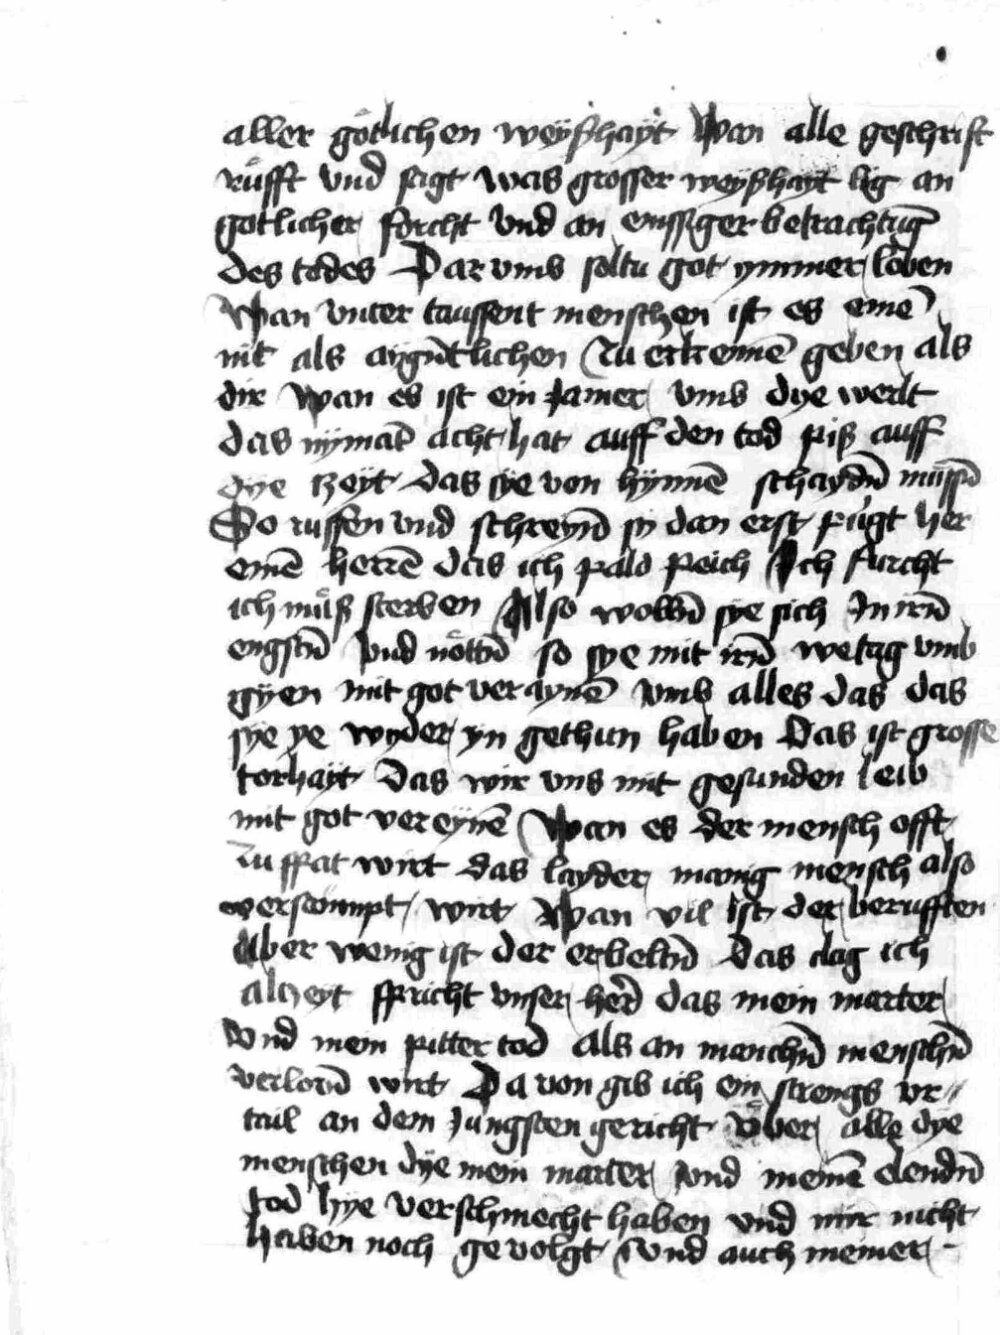 aller götlichen weÿßhaÿt Wan alle geschrift
rüfft vnd sagt was grosser weÿßhaÿt lig an
gotlicher forcht vnd an emssiger betrachtūg
des todes Dar vmb soltu got ymmer loben
Wan vnter taussent menschen ist es eine̅
nit als aygentlichen Zu erkenne̅ geben als
dir Wan es ist ein Jamer vmb dye werlt
das nÿmāt acht hat auff den tod piß auff
dÿe zeÿt das sÿe von hÿnne̅ schayd̅n müss̅n
So ruffen vnd schreyn̅ sy dan erst fügt her
eine̅ herre̅ das ich pald peich Ich furcht
ich müß sterben Also woll̅n sye sich In irn̅
engst̅n vnd nött̅n so sye mit irn̅ wetag vmb
gÿen mit got veraÿne̅ vmb alles das das
sÿe ye wyder yn gethun haben Das ist grosse
torhaÿt Das wir vns mit gesunden leib
mit got vereÿne̅ Wan es der mensch offt
Zu spat wirt das layder manig mensch also
verscompt wirt Wan vil ist der berufften
Aber wenig ist der erbelt̅n Das clag ich
alczeyt spricht vnser her̅ das mein marter
vnd mein pitter tod als an manch̅n mensch̅n
verlorn̅ wirt Da von gib ich ein strengs vr〃
tail an dem Jungsten gericht über alle dÿe
menschen dÿe mein marter vnd meine̅ elend̅n
tod hye verschmecht haben vnd mir nicht
haben noch gevolgt vnd auch meiner -